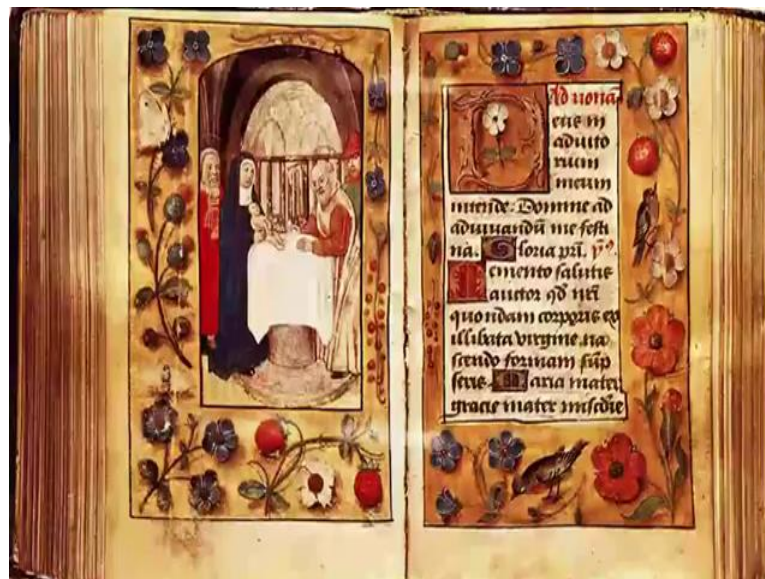 Ad nonā
eus in
adiuto
rium
meum
intende. Domine ad
adiuuandū me festi
na. Gloria pri. ps̄
Memento salutis
auctor qd nr̄i
quondam corporis ex
illibata virgine na
scendo formam sūp
seris. Maria mater
gracie mater mis̄cdie